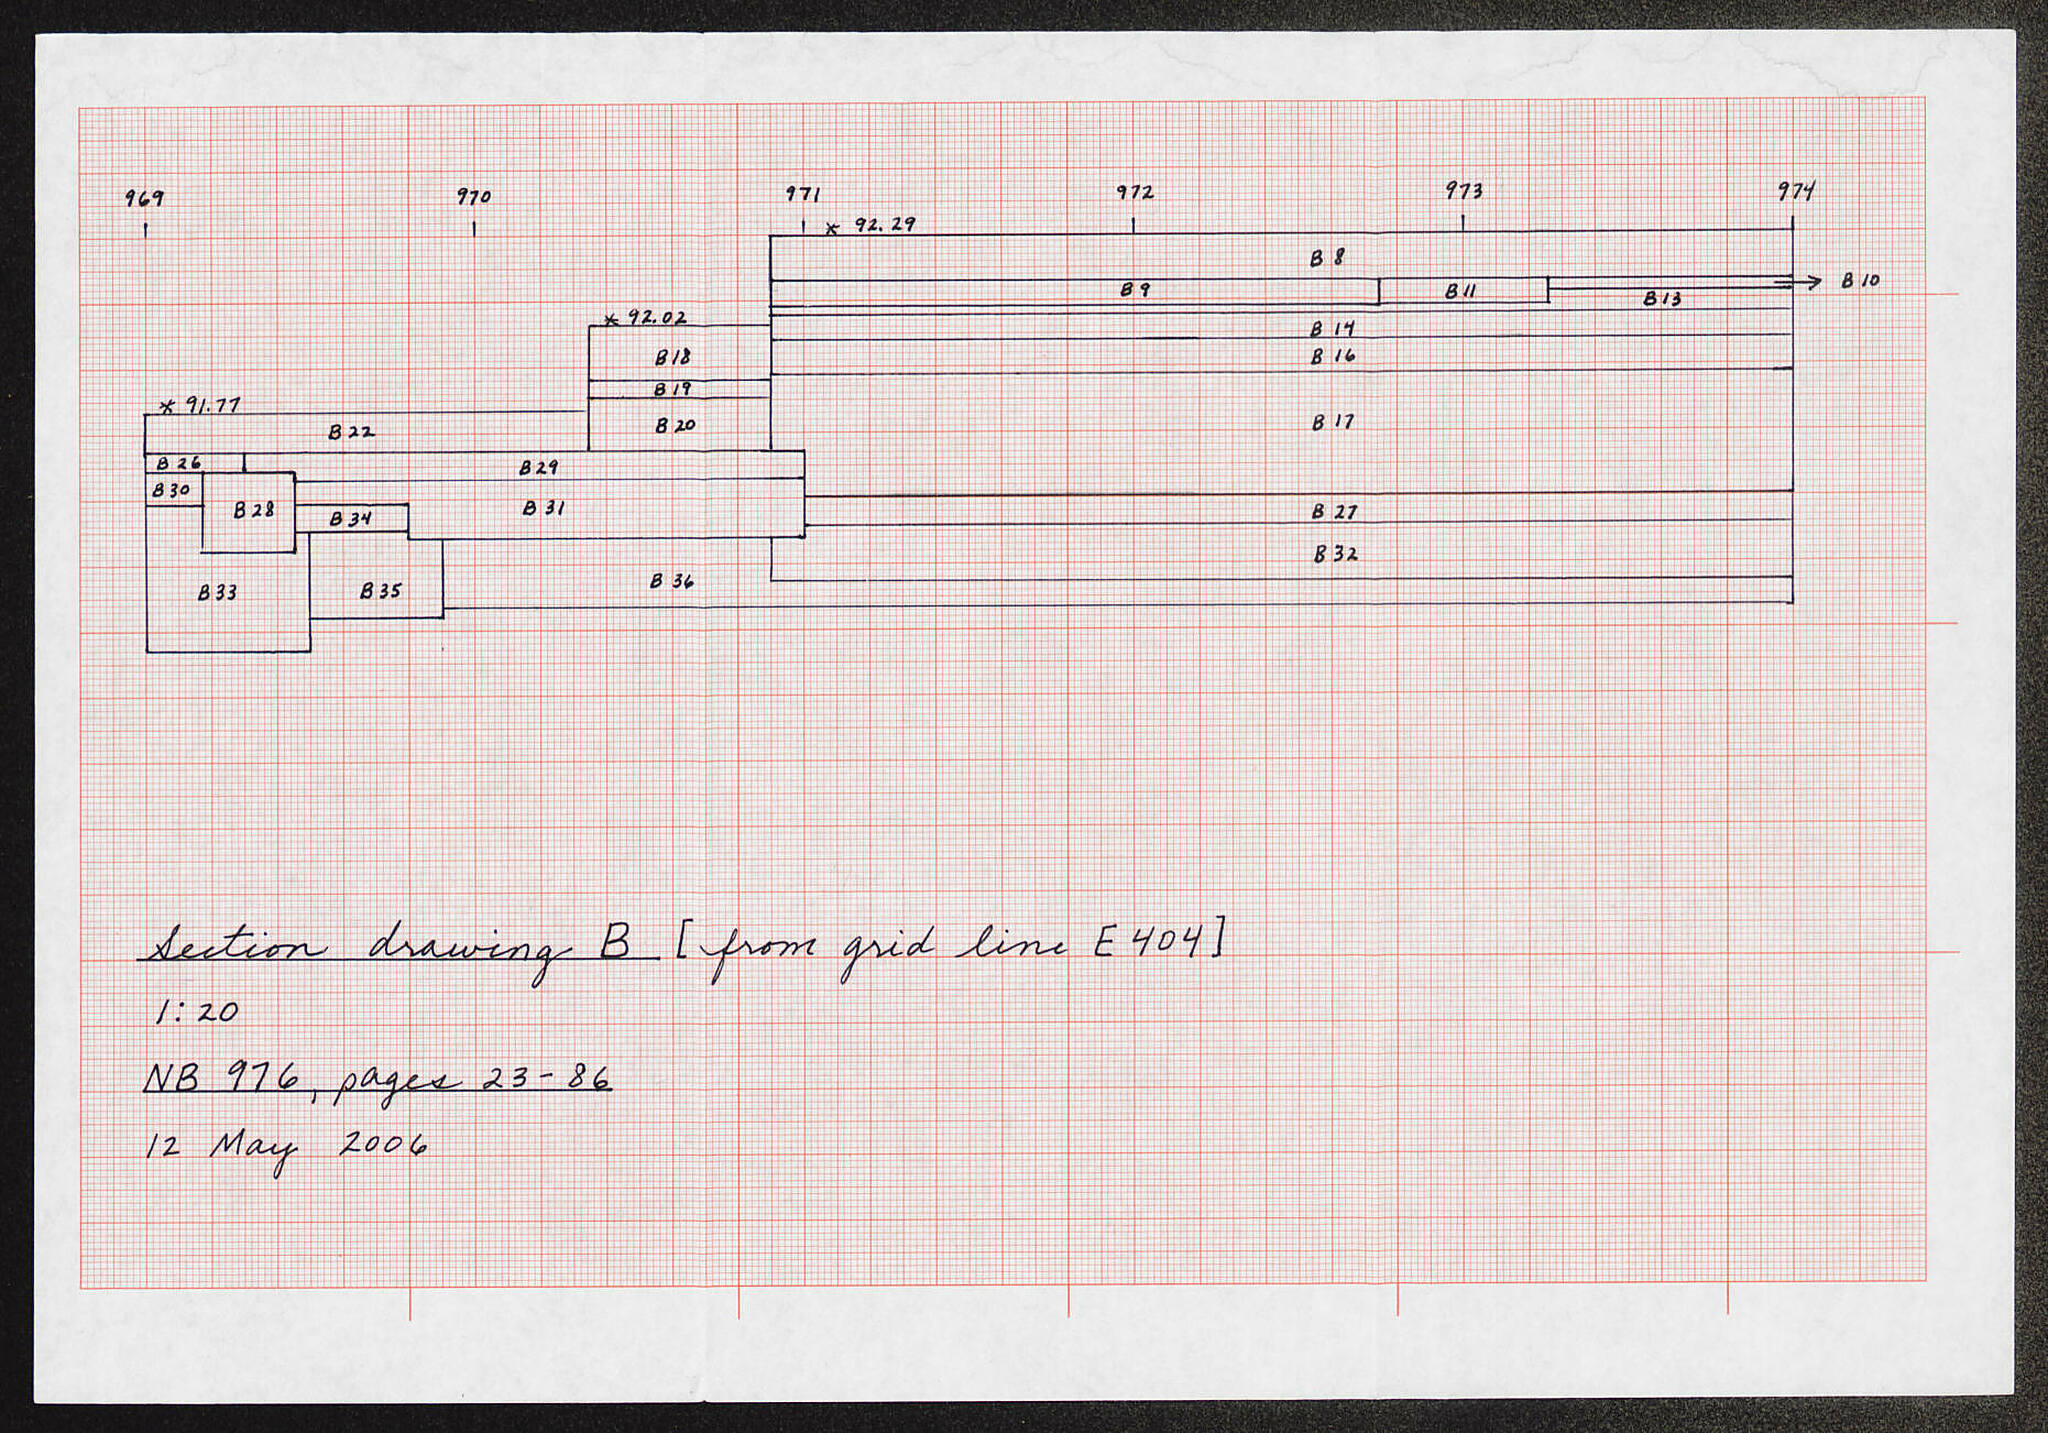 969 970 971 972 973 974
* 92.29
B 8
B 9 B 11 B 13 B 10
* 92.02
B 14
B 18 B 16
B 19
* 91.77
B 22 B 20 B 17
B 26 B 29
B 30 B 28 B 34 B 31 B 27
B 32
B 33 B 35 B 36
Section drawing B [from grid line E 404]
1:20
NB 976, pages 23-86
12 May 2006